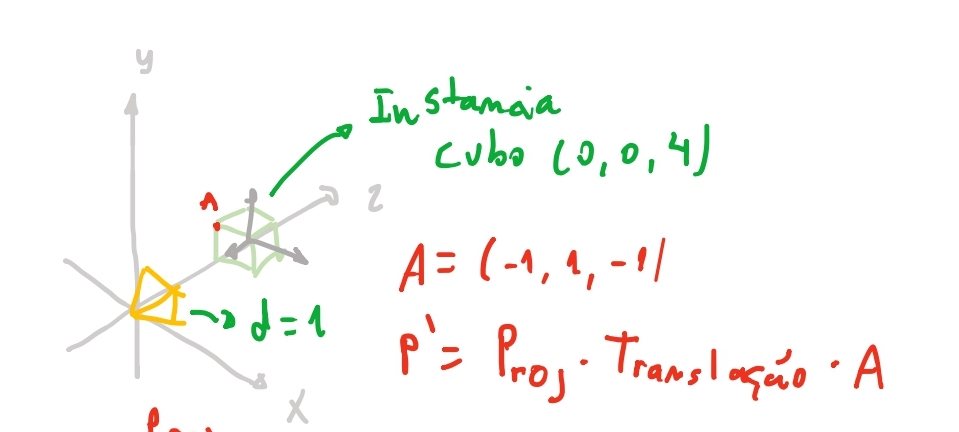 y
Instancia
cubo (0, 0, 4)
A
z
A = (-1, 1, -1)
d = 1
P' = Proj . Translação . A
x